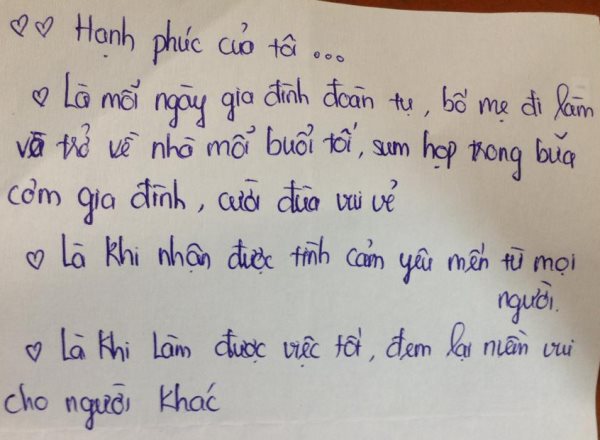 ♡♡ Hạnh phúc của tôi ...
♡ Là mỗi ngày gia đình đoàn tụ, bố mẹ đi làm
và trở về nhà mỗi buổi tối, sum họp trong bữa
cơm gia đình, cười đùa vui vẻ
♡ Là khi nhận được tình cảm yêu mến từ mọi
người.
♡ Là khi làm được việc tốt, đem lại niền vui
cho người khác